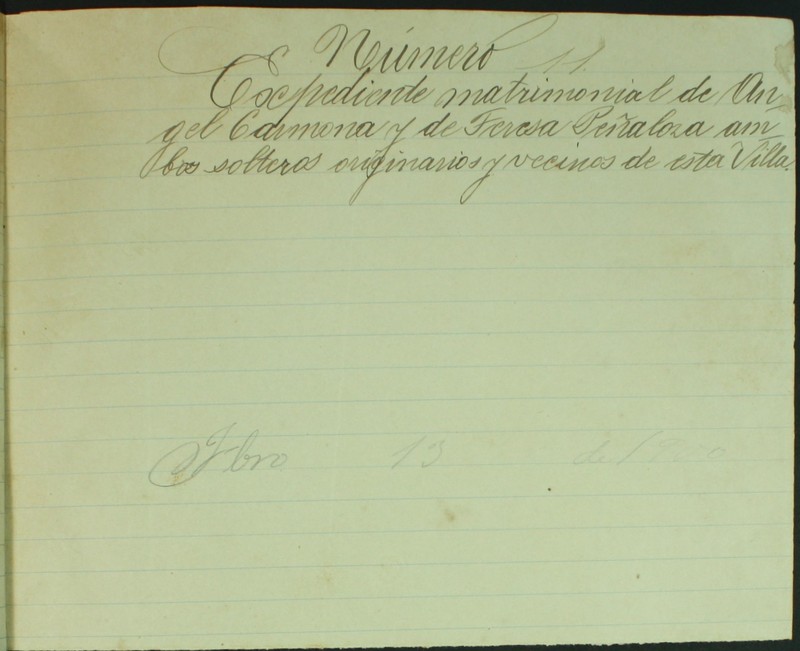 Número 11.
Expediente matrimonial de An-
gel Carmona y de Teresa Peñaloza am-
bos solteros originarios y vecinos de esta Villa.
Fbro 13 de